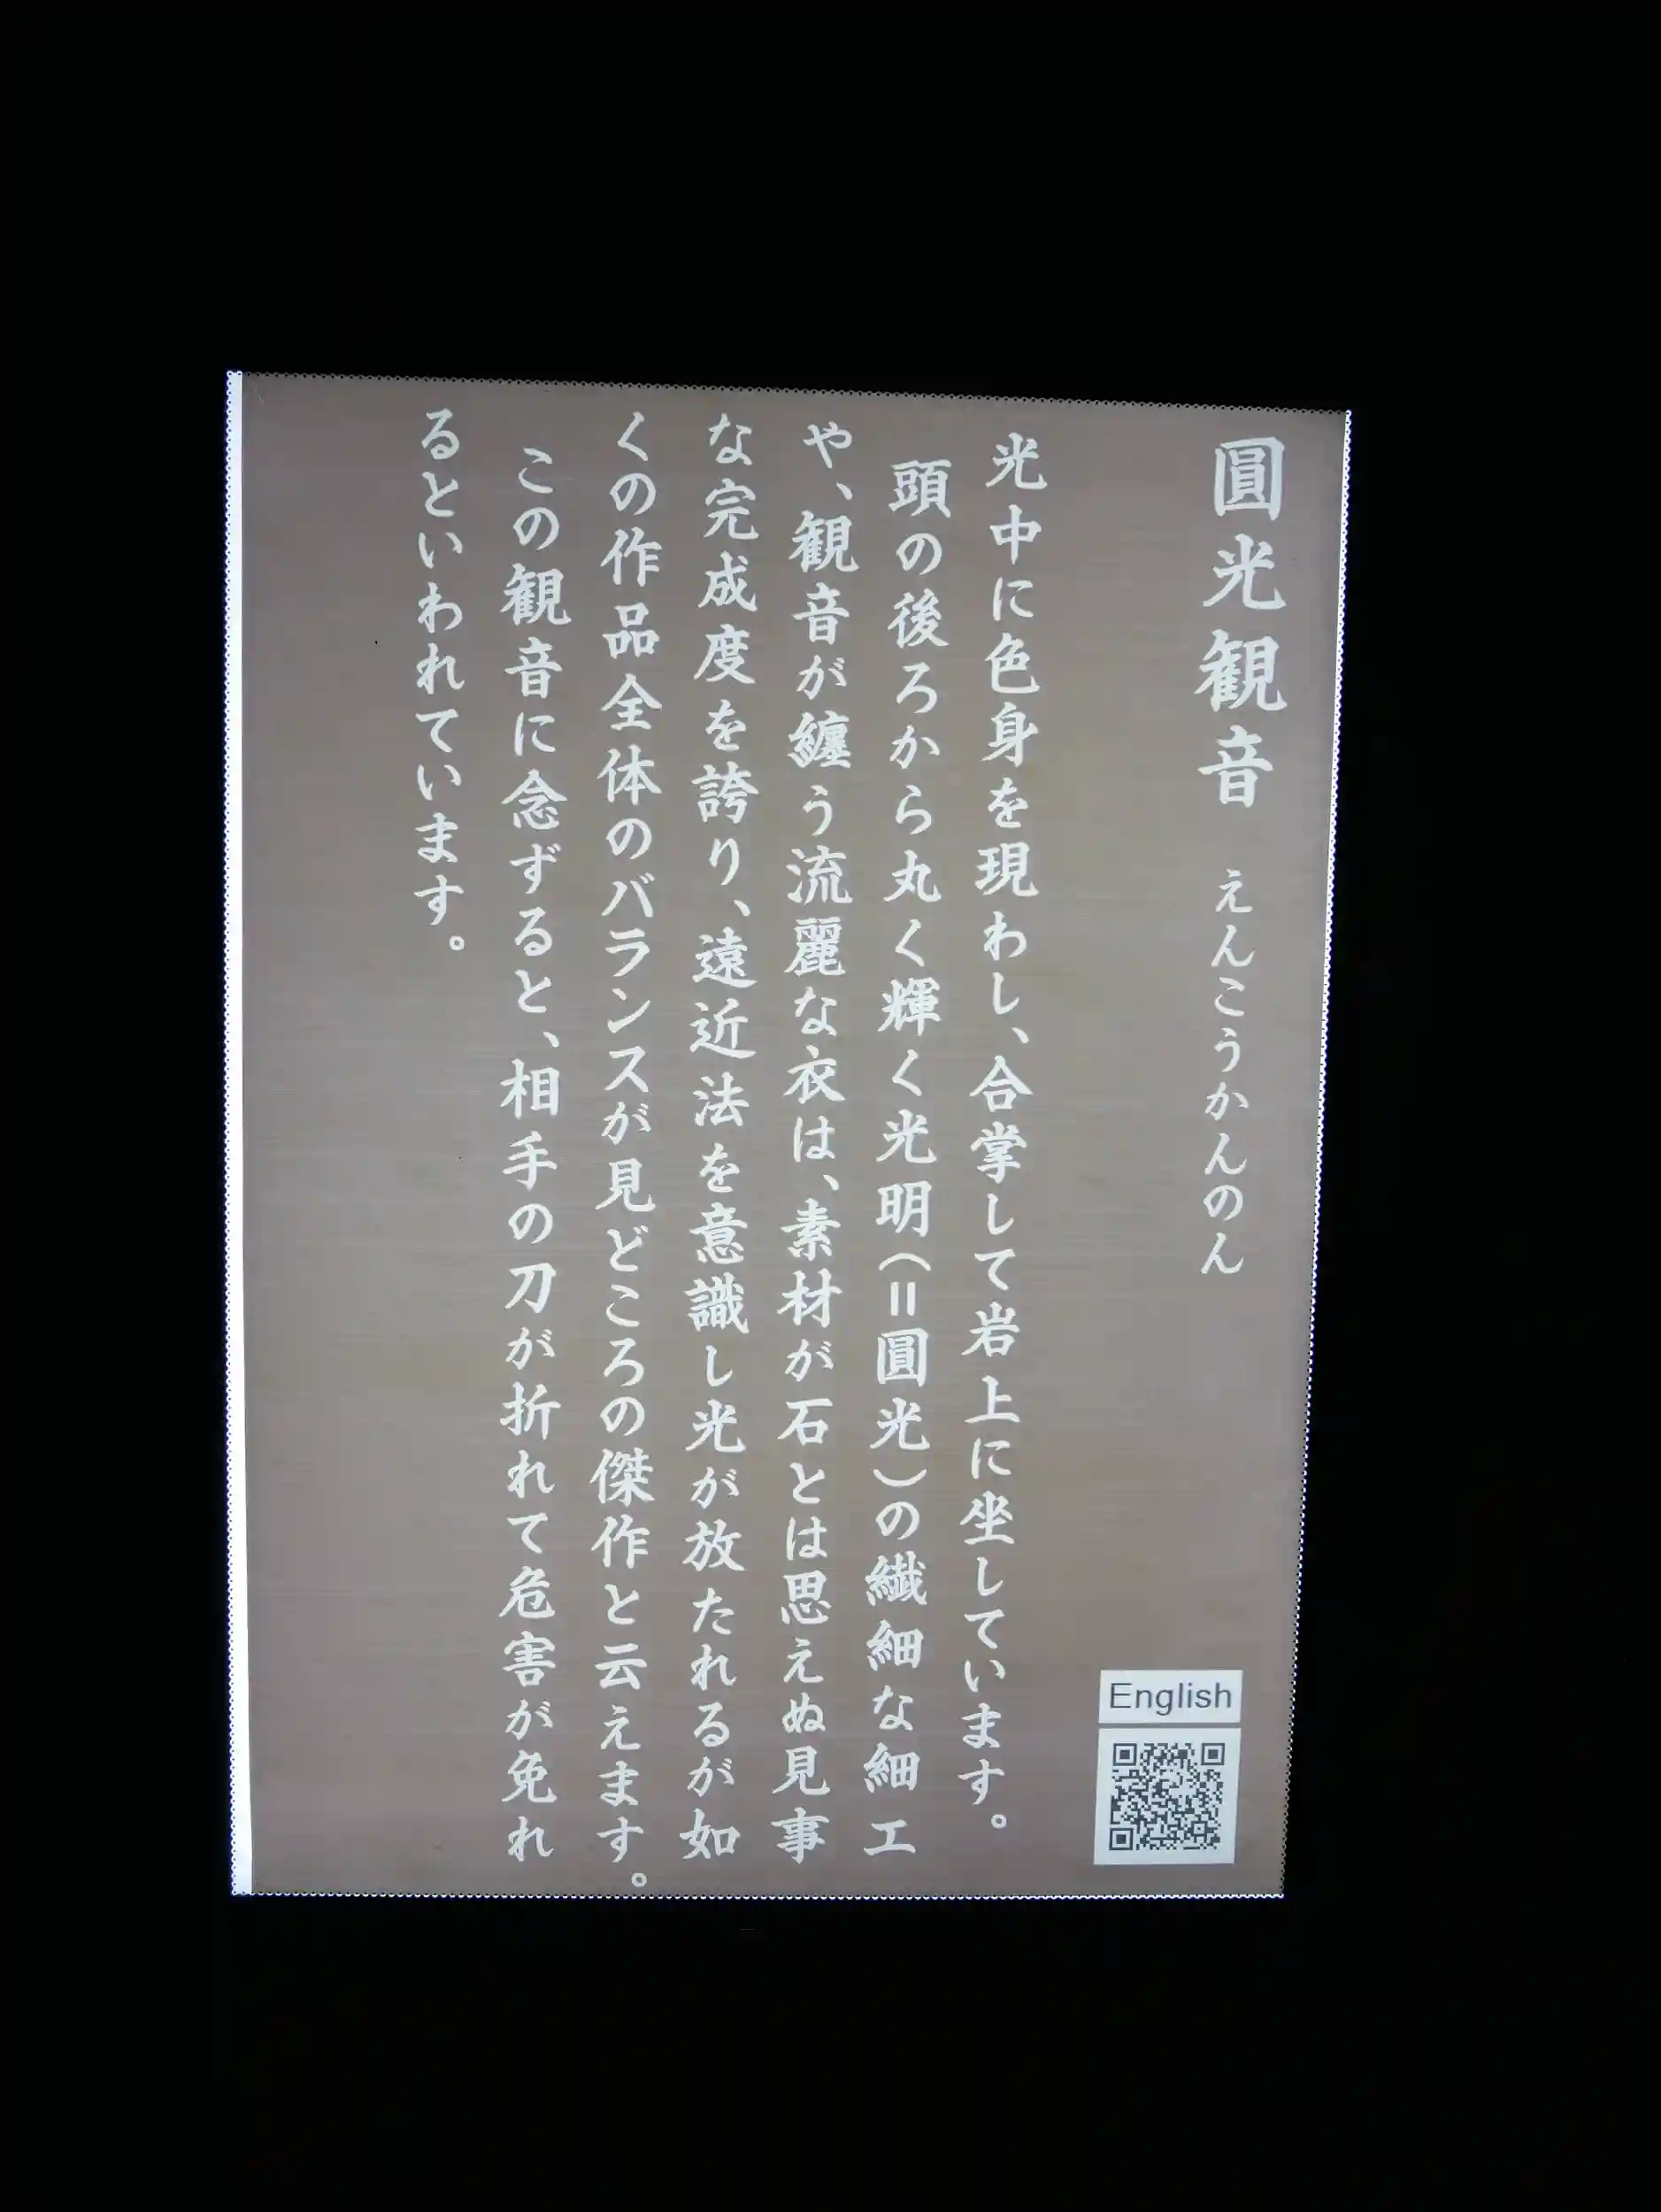 圓光観音 えんこうかんのん
光中に色身を現わし、合掌して岩上に坐しています。
頭の後ろから丸く輝く光明(=圓光)の繊細な細工
や、観音が纏う流麗な衣は、素材が石とは思えぬ見事
な完成度を誇り、遠近法を意識し光が放たれるが如
くの作品全体のバランスが見どころの傑作と云えます。
この観音に念ずると、相手の刀が折れて危害が免れ
るといわれています。
English